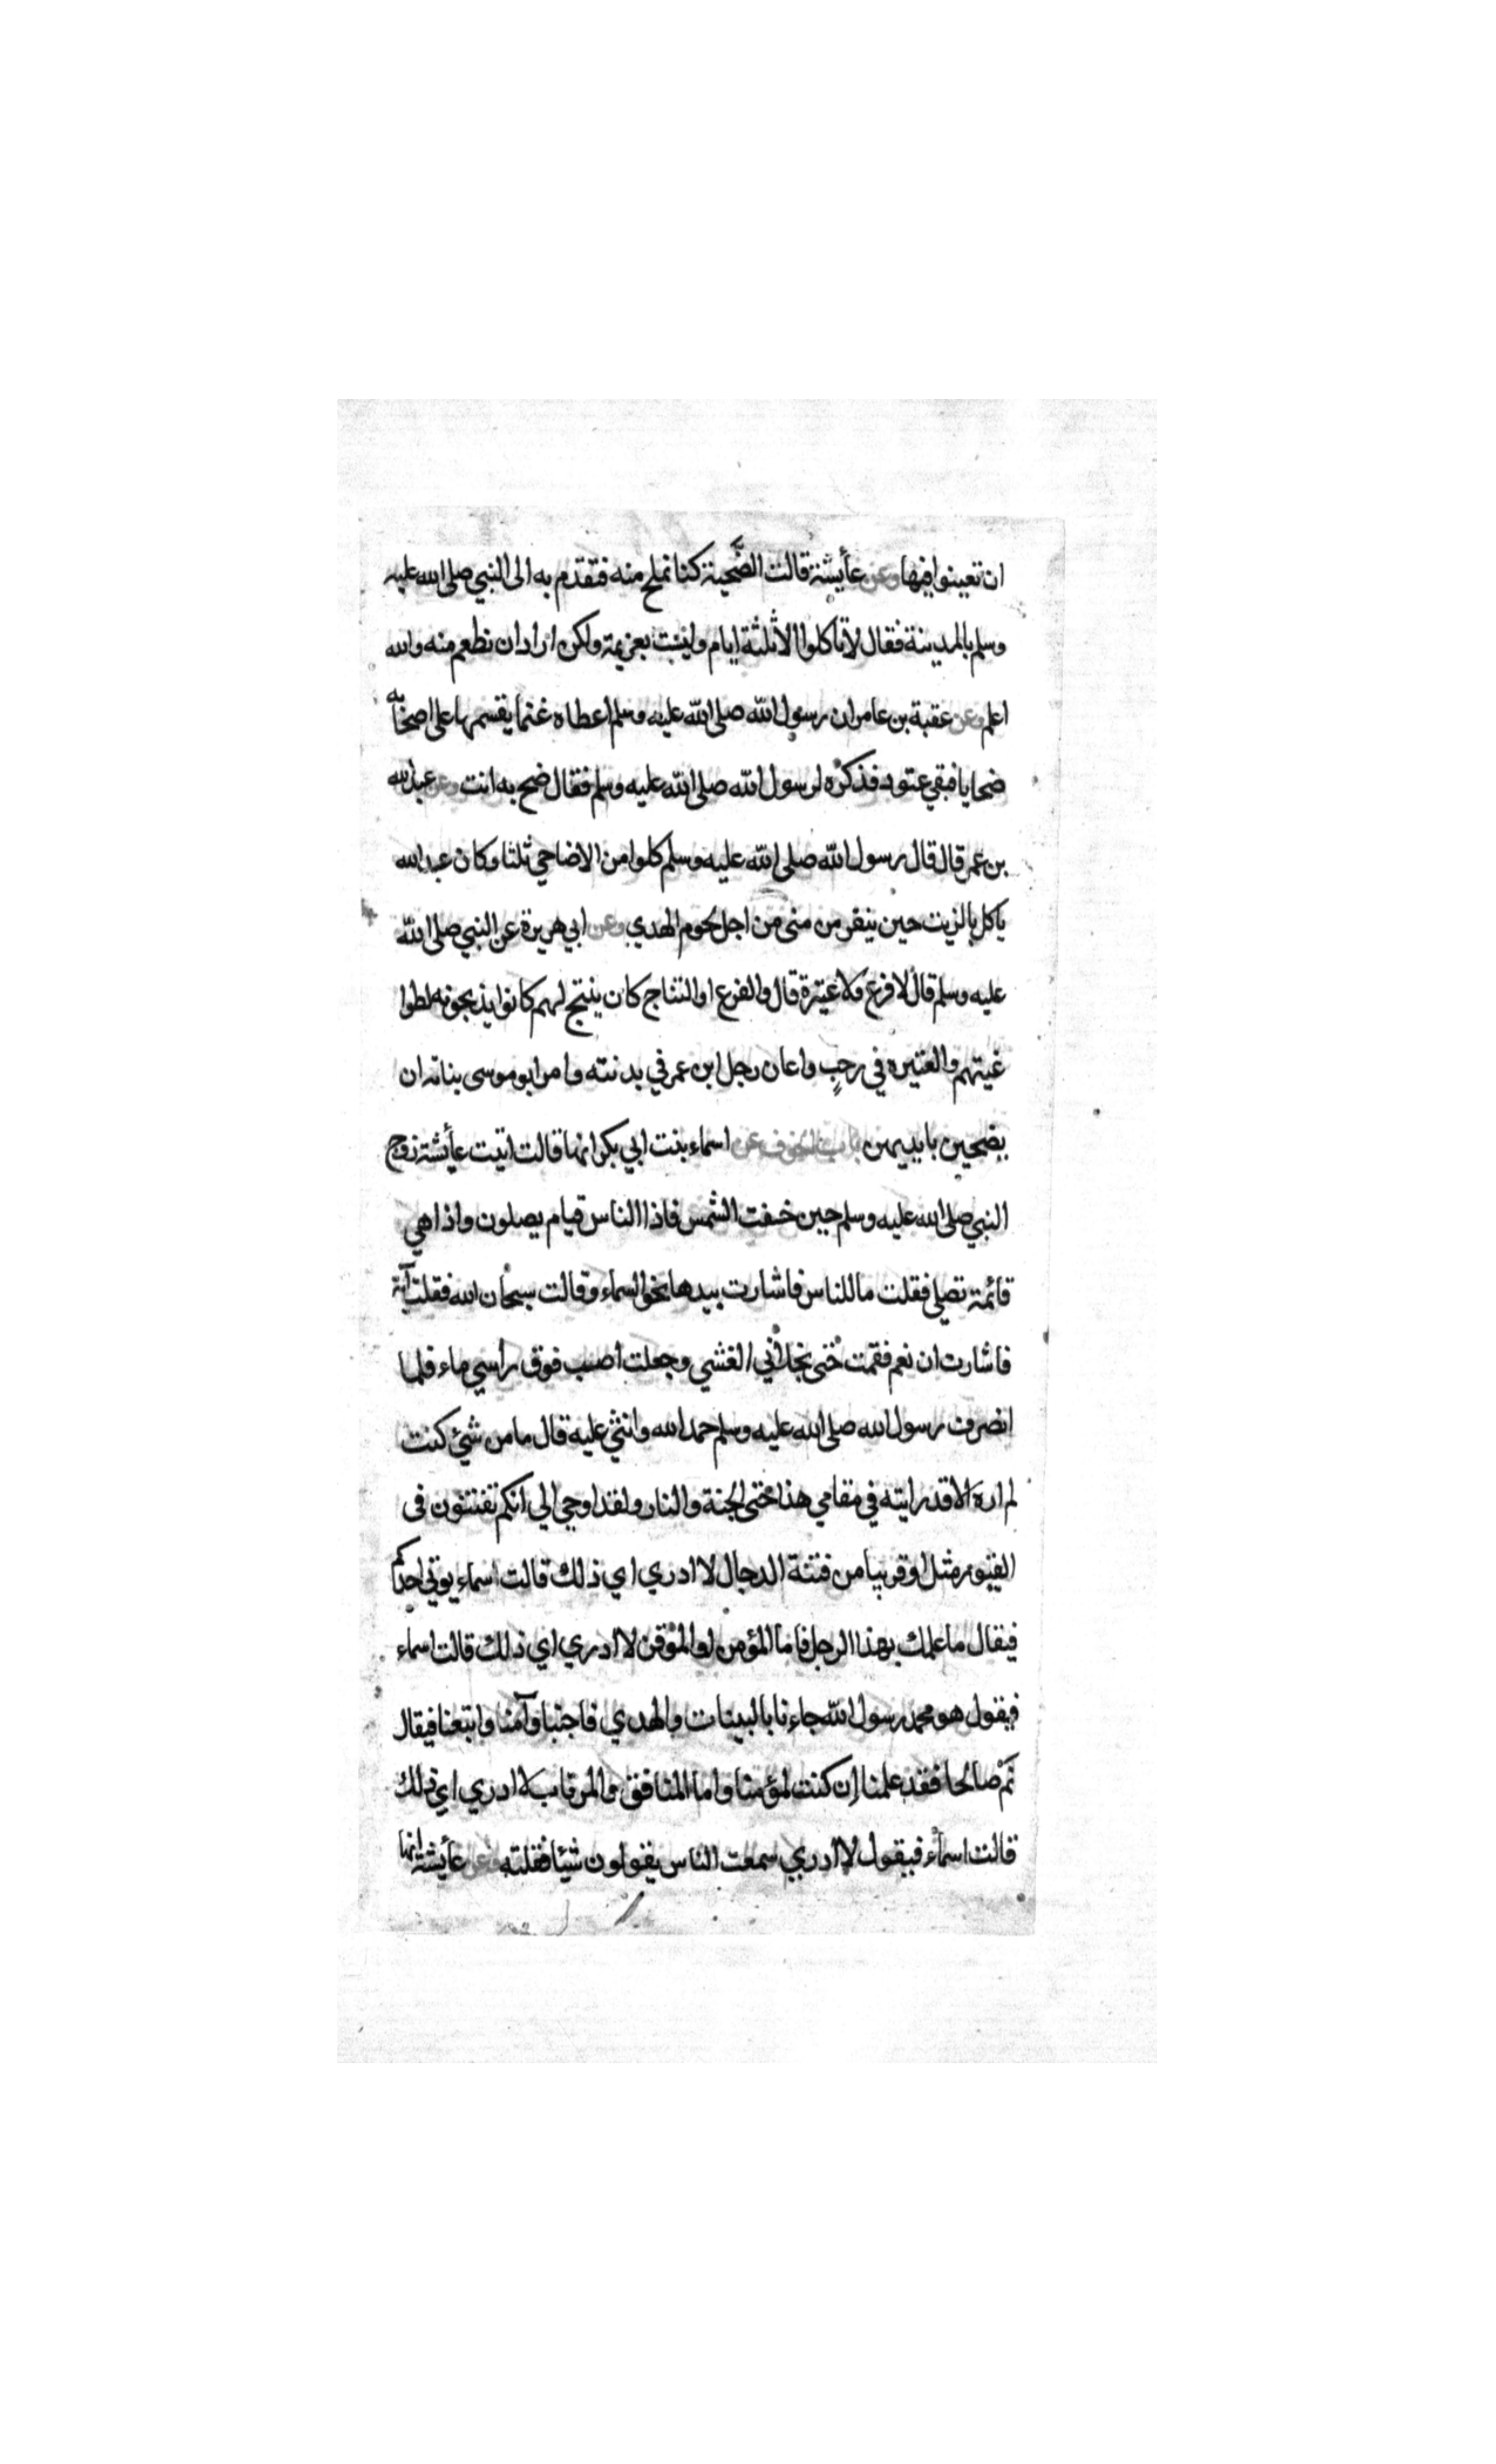 ان تعينوا فيها وعن عأيشة قالت الضَّحية كنا نملح منه فتقدم به الى النبي صلى الله عليه
وسلم بالمدينة فقال لا تأكلوا الا ثلثة ايام وليست بعزيمة ولكن اراد ان نطعم منه والله
اعلم وعن عقبة بن عامر ان رسول الله صلى الله عليه وسلم اعطاه غنما يقسمها على اصحابه
ضحايا فبقي عتود فذكره لرسول الله صلى الله عليه وسلم فقال ضح به انت وعن عبدالله
بن عمر قال قال رسول الله صلى الله عليه وسلم كلوا من الاضاحي ثلثا وكان عبدالله
ياكل بالزيت حين ينفر من منى من اجل لحوم الهدي وعن ابي هريرة عن النبي صلى الله
عليه وسلم قال لا فرع ولا عتيرة قال والفرع اوالنتاج كان ينتج لهم كانوا يذبحونه لطوا
غيتهم والعتيره في رجبٍ واعان رجل ابن عمر في بدنته وامر ابو موسى بناته ان
يضحين بايديهن باب الخوف عن اسماء بنت ابي بكر انها قالت اتيت عأيشة زوج
النبي صلى الله عليه وسلم حين خسفت الشمس فاذا الناس قيام يصلون واذا هي
قائمة تصلي فقلت ما للناس فاشارت بيدها نحو السماء وقالت سبحان الله فقلت آية
فاشارت ان نعم فقمت حتى تجلاني الغشي وجعلت اصب فوق رأسي ماء فلما
انصرف رسول الله صلى الله عليه وسلم حمد الله واثنى عليه قال ما من شيئ كنت
لم اره الا قد رايته في مقامي هذا حتى الجنة والنار ولقد اوحي الي انكم تفتنون فى
القبور مثل او قريبا من فتنة الدجال لا ادري اي ذلك قالت اسماء يوتى احدكم
فيقال ما علمك بهذا الرجل فاما المؤمن او الموقن لا ادري اي ذلك قالت اسماء
فيقول هو محمد رسول الله جاءنا بالبينات والهدي فاجبنا وآمنا واتبعنا فيقال
نَمْ صالحا فقد علمنا إن كنت لمؤمنا واما المنافق والمرتاب لا ادري اي ذلك
قالت اسمآء فيقول لا ادري سمعت الناس يقولون شيئا فقلته وعن عأيشة انها